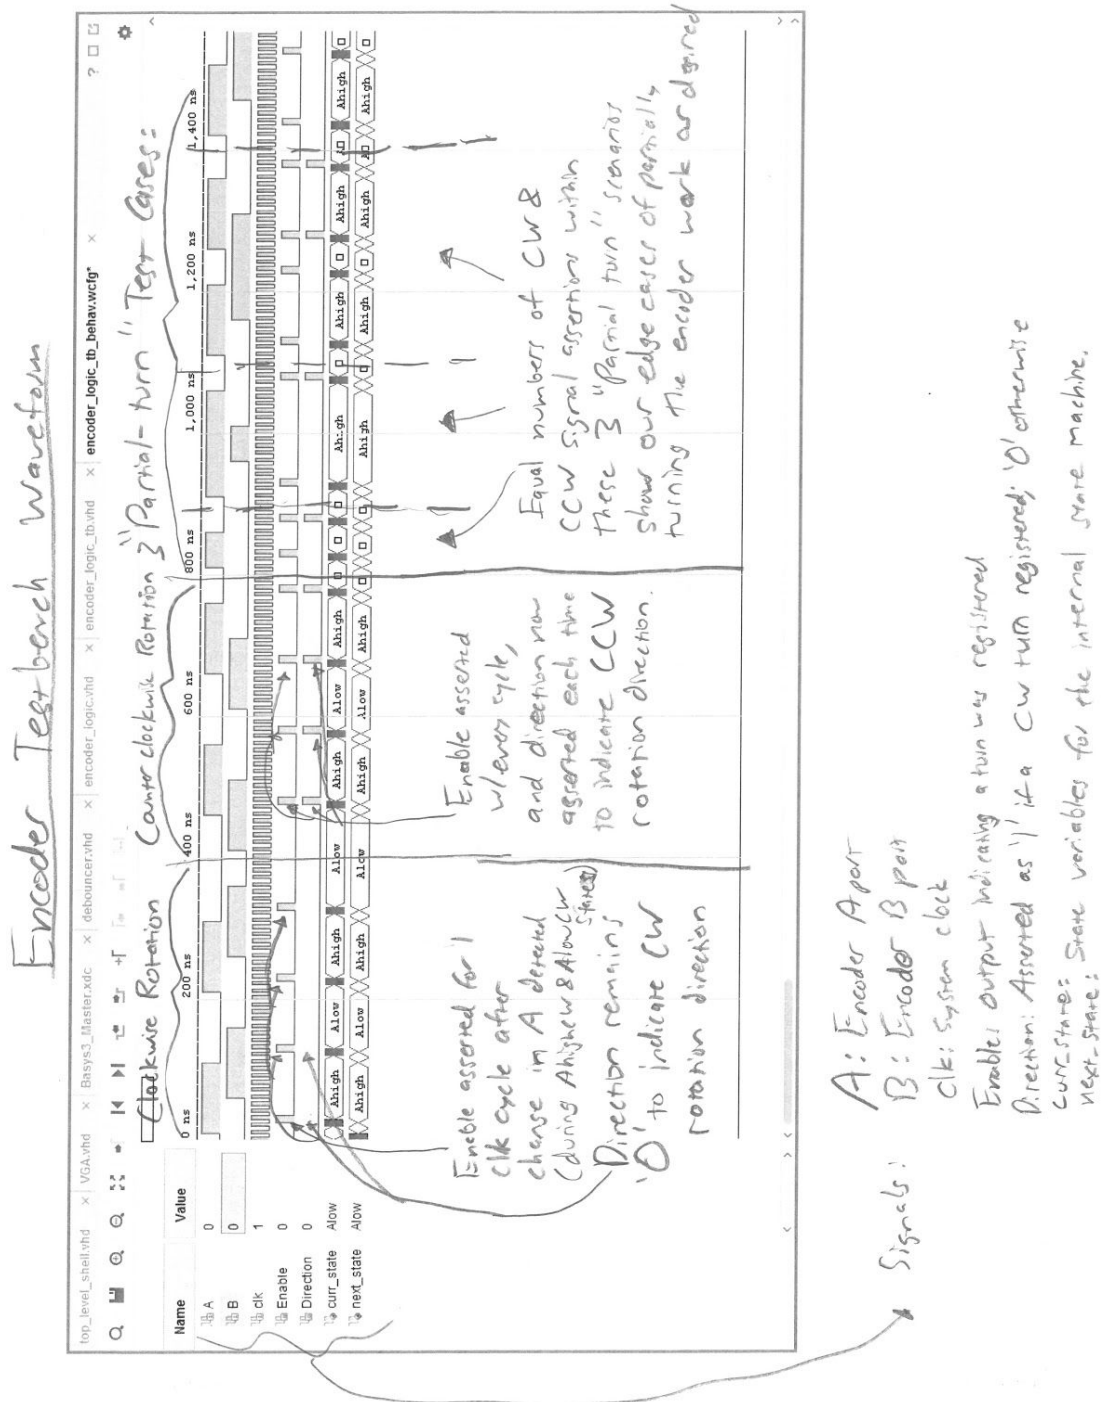 Encoder Testbench Waveform
top_level_shell.vhd × VGA.vhd × Basys3_Master.xdc × debouncer.vhd × encoder_logic.vhd × encoder_logic_tb.vhd × encoder_logic_tb_behav.wcfg* ×
Clockwise Rotation
Counter clockwise Rotation
3 "Partial-turn" Test Cases:
Name Value
0 ns 200 ns 400 ns 600 ns 800 ns 1,000 ns 1,200 ns 1,400 ns
A 0
B 0
clk 1
Enable 0
Direction 0
curr_state Alow Ahigh Alow Ahigh Alow Ahigh Alow Ahigh Ahigh Ahigh Ahigh Ahigh
next_state Alow Ahigh Alow Ahigh Alow Ahigh Alow Ahigh Ahigh Ahigh Ahigh Ahigh
Enable asserted for 1
clk cycle after
change in A detected
(during AhighCW & AlowCW
states)
Direction remains
'0' to indicate CW
rotation direction
Enable asserted
w/every cycle,
and direction now
asserted each time
to indicate CCW
rotation direction.
Equal numbers of CW &
CCW signal assertions within
these 3 "Partial turn" scenarios
show our edge cases of partially
turning the encoder work as desired
Signals:
A: Encoder A port
B: Encoder B port
Clk: System clock
Enable: output indicating a turn was registered
Direction: Asserted as '1' if a CW turn registered; '0' otherwise
curr_state:
next_state: State variables for the internal state machine.